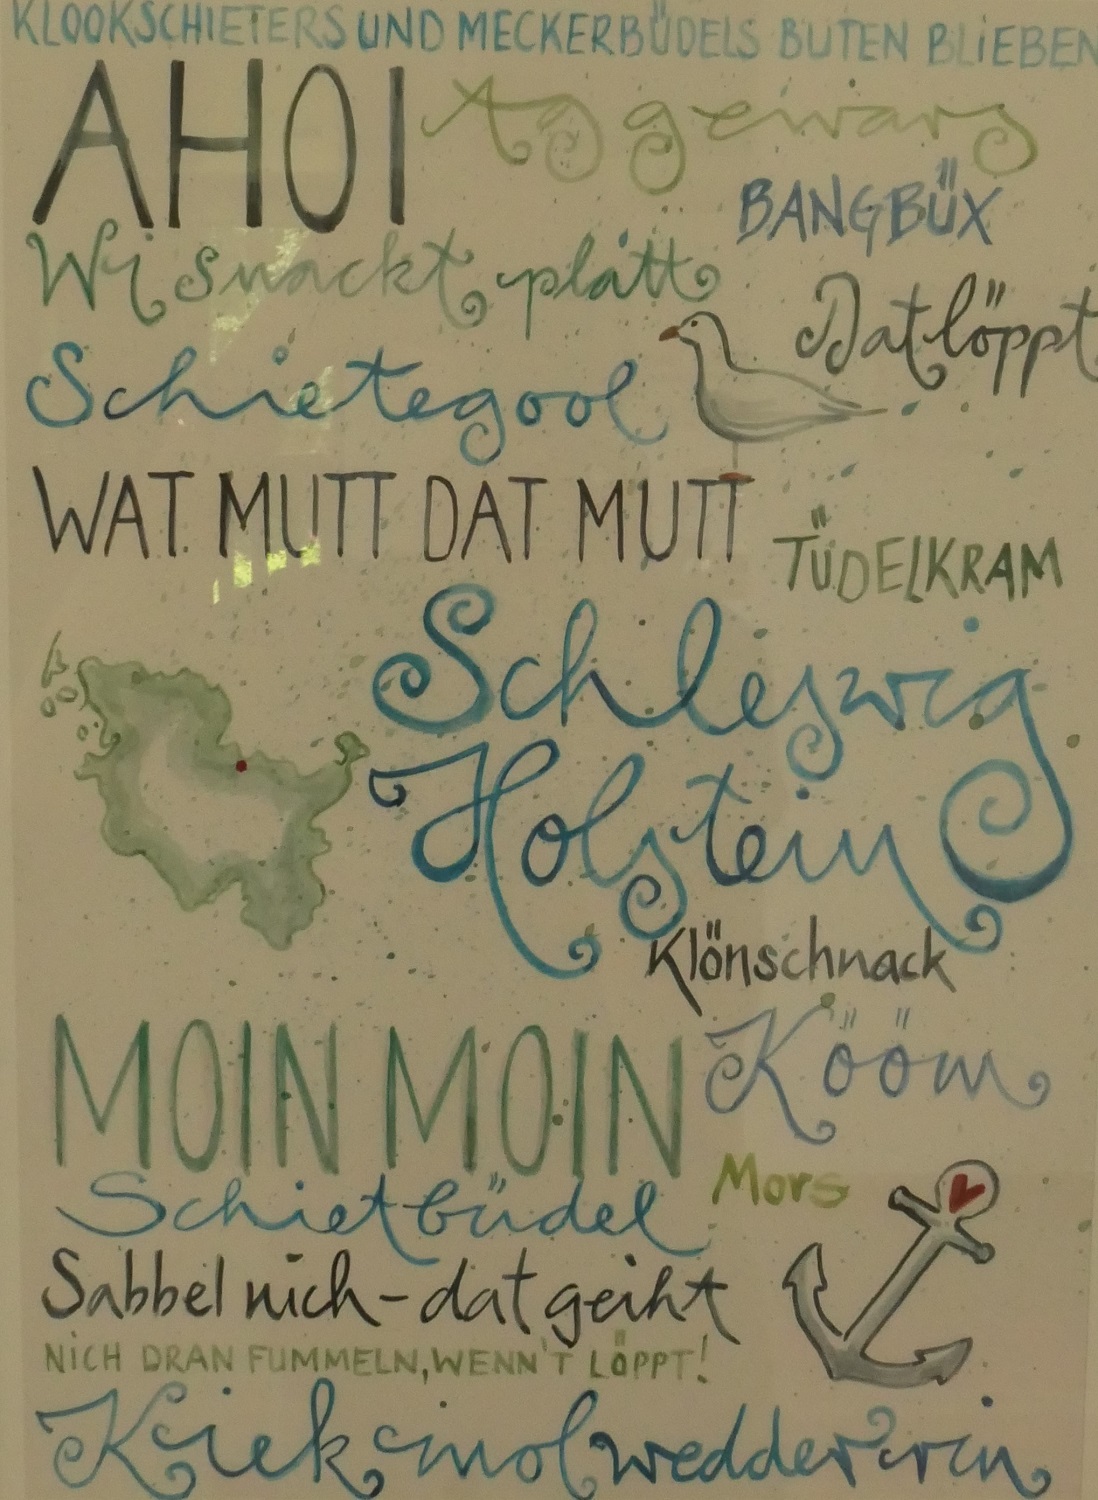 KLOOKSCHIETERS UND MECKERBÜDELS BUTEN BLIEBEN
AHOI
Aggewars
BANGBÜX
Wi snackt platt
Dat löppt
Schietegool
WAT MUTT DAT MUTT
TÜDELKRAM
Schleswig
Holstein
Klönschnack
MOIN MOIN
Kööm
Mors
Schietbüdel
Sabbel nich - dat geiht
NICH DRAN FUMMELN, WENN'T LÖPPT!
Kiek mol wedder in